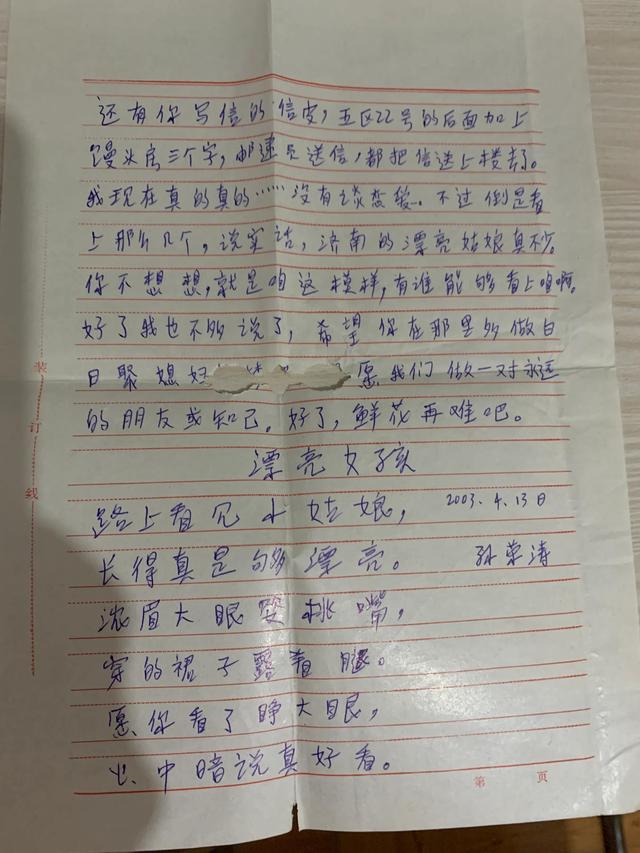 还有你写信的信皮，五区22号的后面加上
馒头房三个字，邮递员送信，都把信送上楼去了。
我现在真的真的……没有谈恋爱。不过倒是看
上那么几个，说实话，济南的漂亮姑娘真不少。
你不想想，就是咱这模样，有谁能够看上咱啊。
好了我也不多说了，希望你在那里多做白
日聚媳妇 愿我们做一对永远
的朋友或知己。好了，鲜花再难吧。
漂亮女孩
路上看见小姑娘， 2003.4.13日
长得真是够漂亮。 孙荣涛
浓眉大眼樱桃嘴，
穿的裙子露着腿。
愿你看了睁大眼，
心中暗说真好看。
装
订
线
第 页